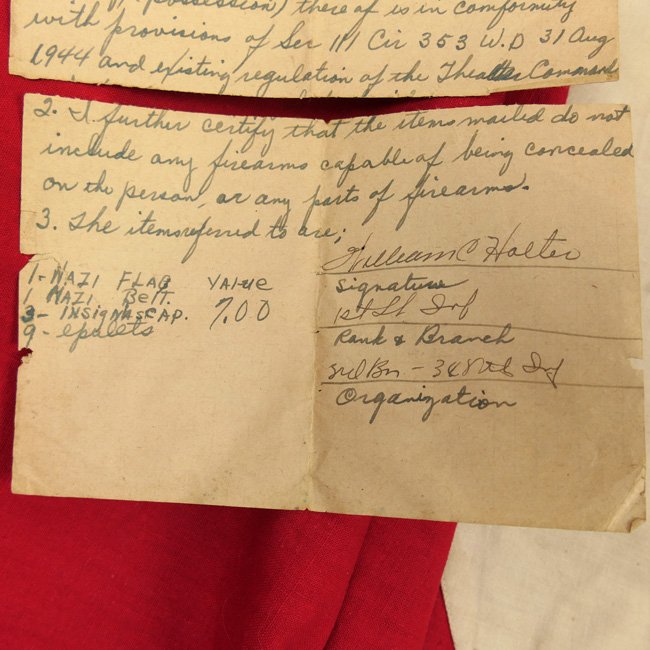 possession) thereof is in conformity
with provisions of Sec III Cir 353 W.D 31 Aug
1944 and existing regulation of the Theatre Command
2. I further certify that the items mailed do not
include any firearms capable of being concealed
on the person, or any parts of firearms.
3. The items referred to are;
1-NAZI FLAG VALUE
1 NAZI BelT. 7.00
3- INSIGNAS CAP.
9- epalets
William C Holter
Signature
1st Lt Inf
Rank & Branch
3rd Bn - 348th Inf
Organization